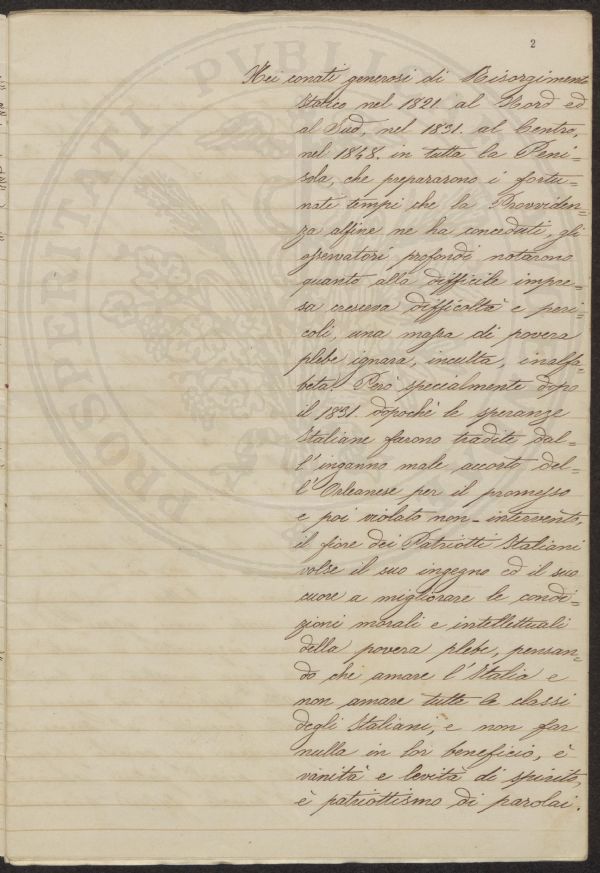 2
Nei conati generosi di Risorgimento
Italico nel 1821 al Nord ed
al Sud, nel 1831. al Centro,
nel 1848. in tutta la Peni=
sola, che prepararono i fortu=
nati tempi che la Provviden=
za alfine ne ha conceduti, gli
osservatori profondi notarono
quanto alla difficile impre=
sa cresceva difficoltà e peri=
coli, una massa di povera
plebe ignara, inculta, inalfa=
beta. Però specialmente dopo
il 1831. dopochè le speranze
Italiane furono tradite dal=
l'inganno male accorto del=
l'Orleanese per il promesso
e poi violato non-intervento,
il fiore dei Patriotti Italiani
volse il suo ingegno ed il suo
cuore a migliorare le condi=
zioni morali e intellettuali
della povera plebe, pensan=
do che amare l'Italia e
non amare tutte le classi
degli Italiani, e non far
nulla in lor beneficio, è
vanità e levità di spirito,
è patriottismo di parolai.
PROSPERITATI PVBLICAE